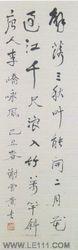 解落三秋叶能开二月花
过江千尺浪入竹万竿斜
唐人李峤咏风 己丑春
www.le111.com